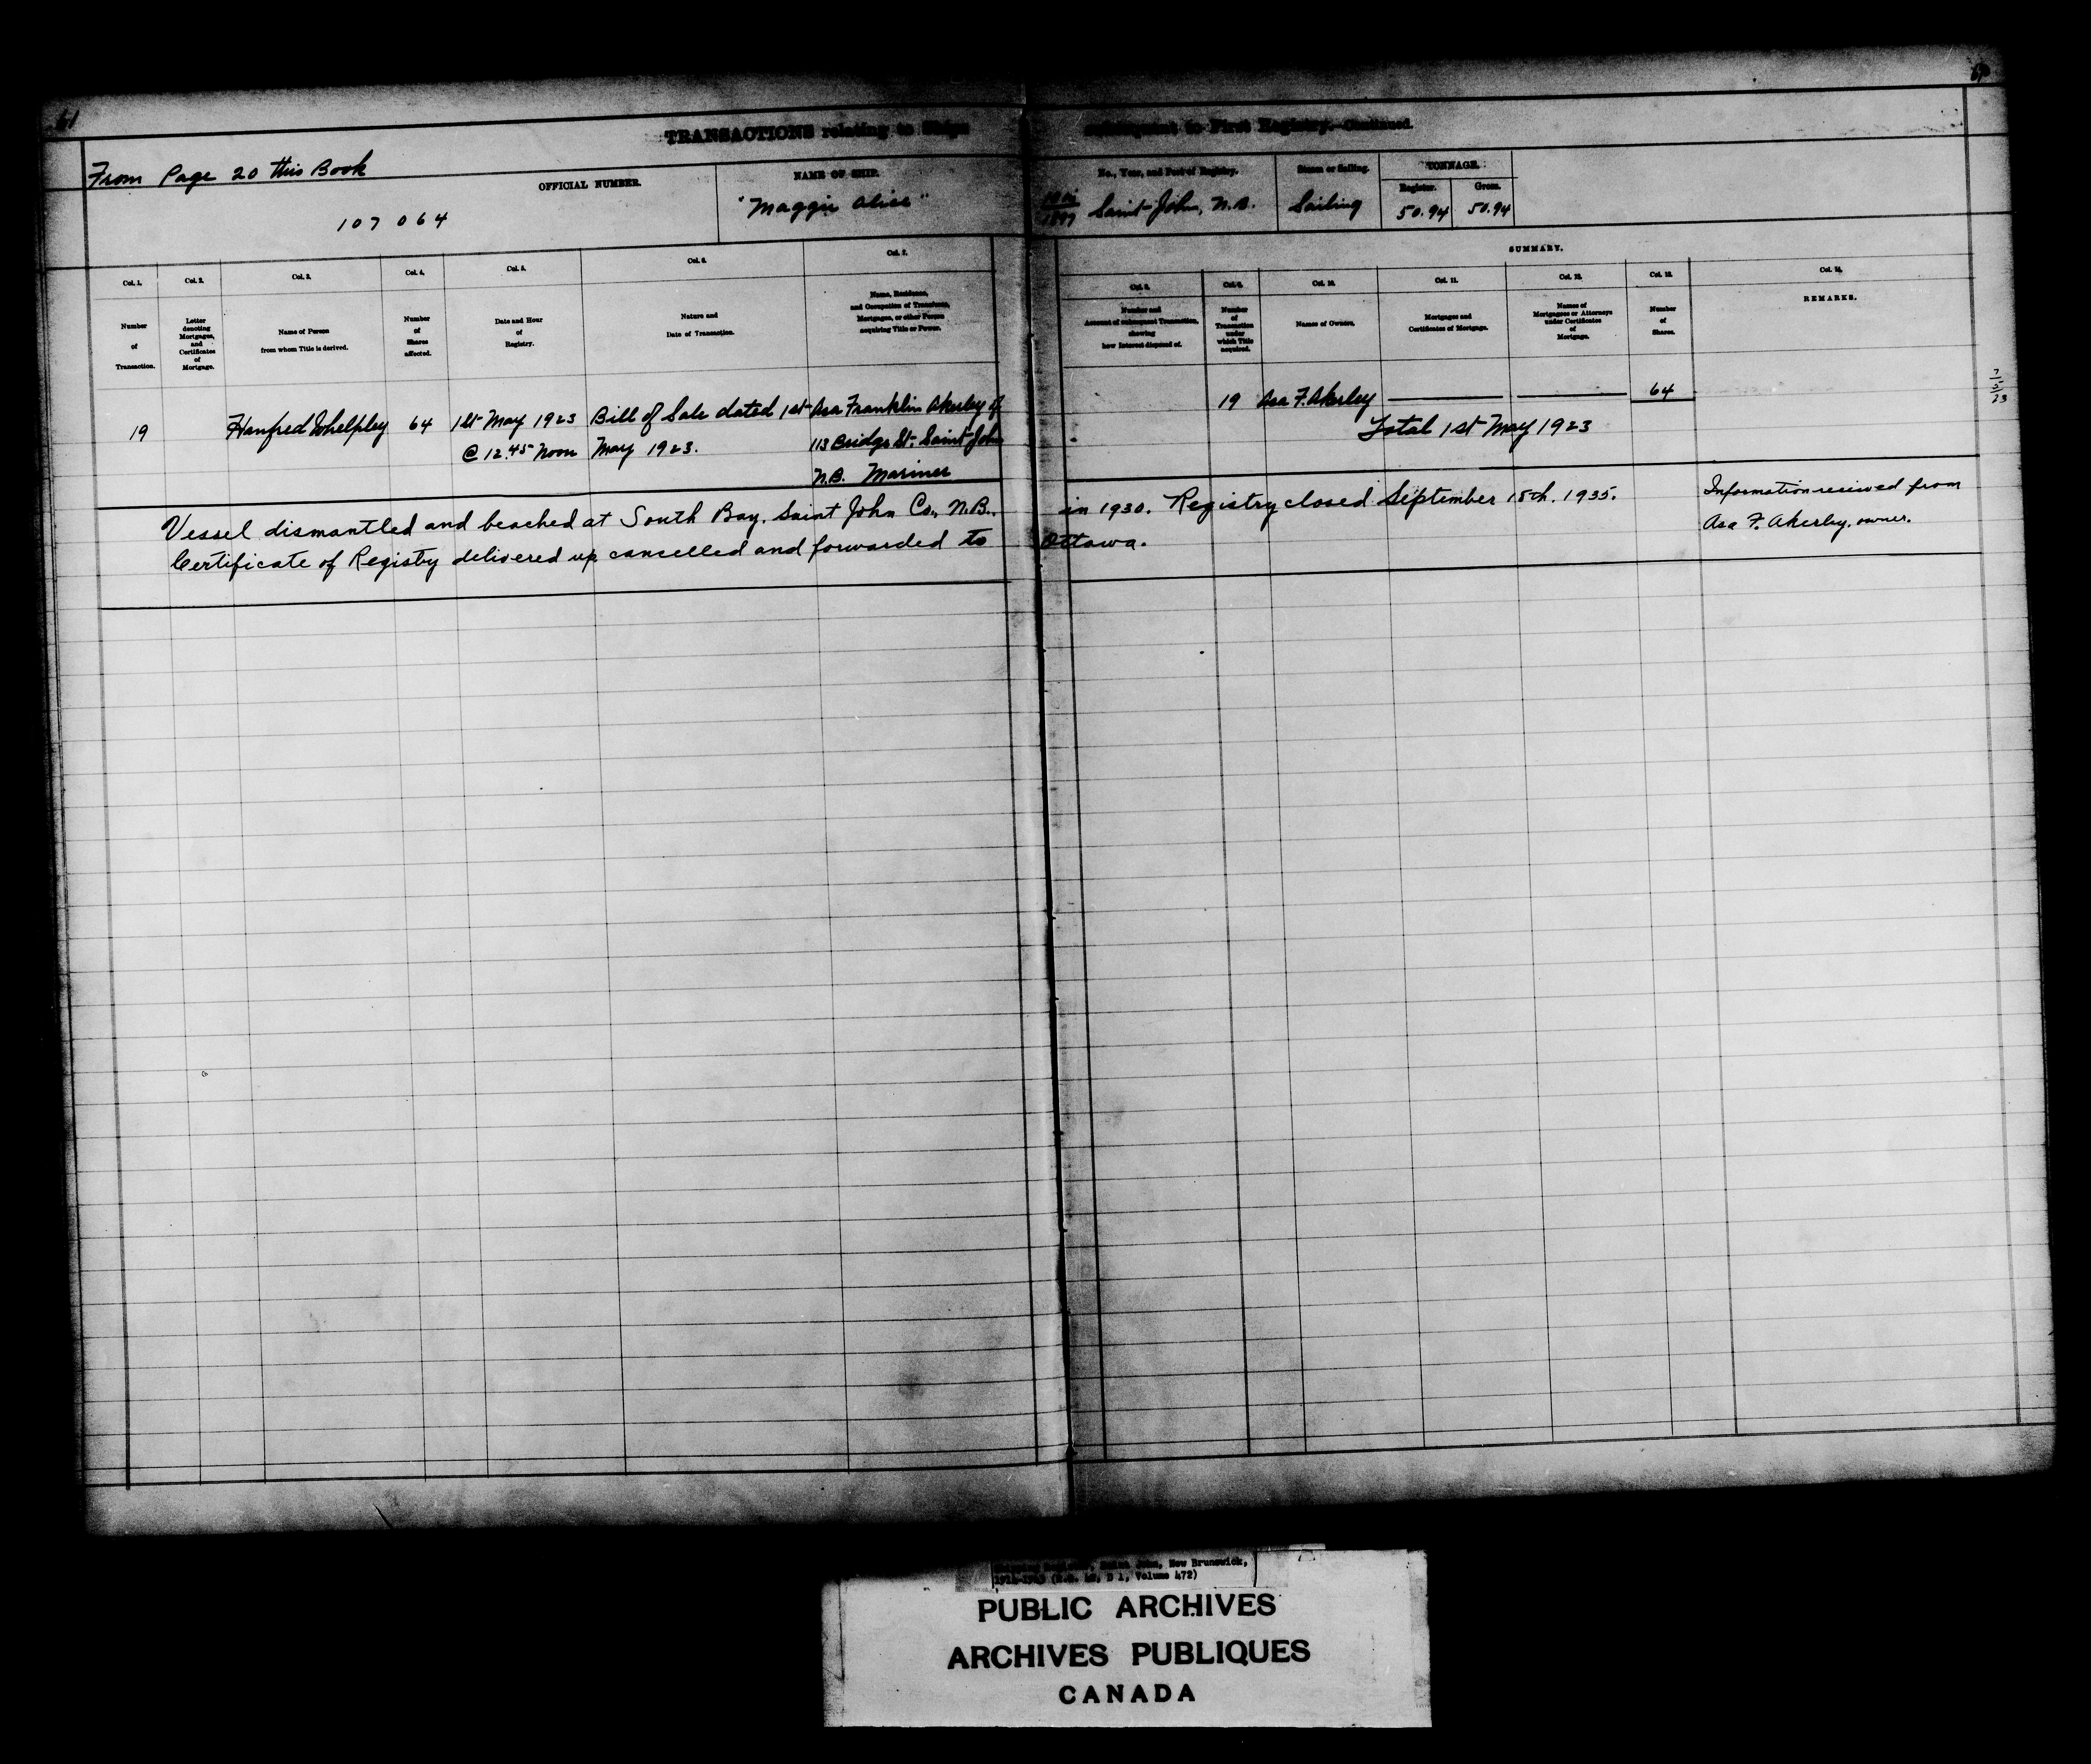 61
TRANSACTIONS relating to Ships
subsequent to First Registry.—Continued.
From Page 20 this Book
OFFICIAL NUMBER.
107 064
NAME OF SHIP.
"Maggie Alice"
No., Year, and Port of Registry.
1897 Saint John, N.B.
Steam or Sailing.
Sailing
TONNAGE.
Register.
50.94
Gross.
50.94
SUMMARY.
Col. 1.
Number
of
Transaction.
Col. 2.
Letter
denoting
Mortgages,
and
Certificates
of
Mortgage.
Col. 3.
Name of Person
from whom Title is derived.
Col. 4.
Number
of
Shares
affected.
Col. 5.
Date and Hour
of
Registry.
Col. 6.
Nature and
Date of Transaction.
Col. 7.
Name, Residence,
and Occupation of Transferee,
Mortgagee, or other Person
acquiring Title or Power.
Col. 8.
Number and
Account of subsequent Transaction,
showing
how Interest disposed of.
Col. 9.
Number
of
Transaction
under
which Title
acquired.
Col. 10.
Names of Owners.
Col. 11.
Mortgages and
Certificates of Mortgage.
Col. 12.
Names of
Mortgagees or Attorneys
under Certificates
of
Mortgage.
Col. 13.
Number
of
Shares.
Col. 14.
REMARKS.
19
Hanford Whelpley
64
1st May 1923
@ 12.45 Noon
Bill of Sale dated 1st
May 1923.
Asa Franklin Akerley of
113 Bridge St. Saint John
N.B. Mariner
19
Asa F. Akerley
64
Total 1st May 1923
7
5
23
Vessel dismantled and beached at South Bay, Saint John Co., N.B., in 1930. Registry closed September 18th. 1935.
Certificate of Registry delivered up cancelled and forwarded to Ottawa.
Information received from
Asa F. Akerley, owner.
New Brunswick,
Volume 472)
PUBLIC ARCHIVES
ARCHIVES PUBLIQUES
CANADA